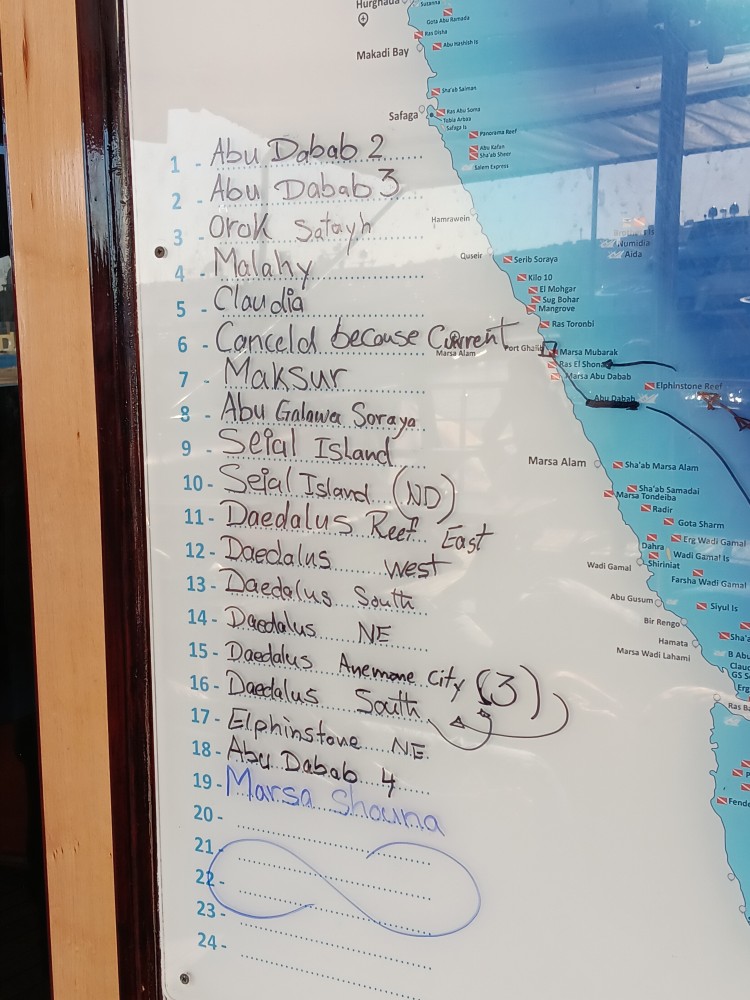 1 - Abu Dabab 2
2 - Abu Dabab 3
3 - Orok Satayh
4 - Malahy
5 - Claudia
6 - Canceld because Current
7 - Maksur
8 - Abu Galawa Soraya
9 - Seial Island
10 - Seial Island (ND)
11 - Daedalus Reef East
12 - Daedalus west
13 - Daedalus South
14 - Daedalus NE
15 - Daedalus Anemone City (3)
16 - Daedalus South
17 - Elphinstone NE
18 - Abu Dabab 4
19 - Marsa Shouna
20 -
21 -
22 -
23 -
24 -
Hurghada
Gota Abu Ramada
Ras Disha
Abu Hashish Is
Makadi Bay
Sha'ab Saiman
Safaga
Ras Abu Soma
Tobia Arbaa
Safaga Is
Panorama Reef
Abu Kafan
Sha'ab Sheer
Salem Express
Hamrawein
Numidia
Aida
Quseir
Serib Soraya
Kilo 10
El Mohgar
Sug Bohar
Mangrove
Ras Toronbi
Port Ghalib
Marsa Alam
Marsa Mubarak
Ras El Shona
Marsa Abu Dabab
Elphinstone Reef
Abu Dabab
Marsa Alam
Sha'ab Marsa Alam
Sha'ab Samadai
Marsa Tondeiba
Radir
Gota Sharm
Erg Wadi Gamal
Dahra
Wadi Gamal Is
Wadi Gamal
Shiriniat
Farsha Wadi Gamal
Abu Gusum
Siyul Is
Bir Rengo
Sha'a
Hamata
Marsa Wadi Lahami
B Abu
Clau
GS S
Erg
Ras Ba
Fende